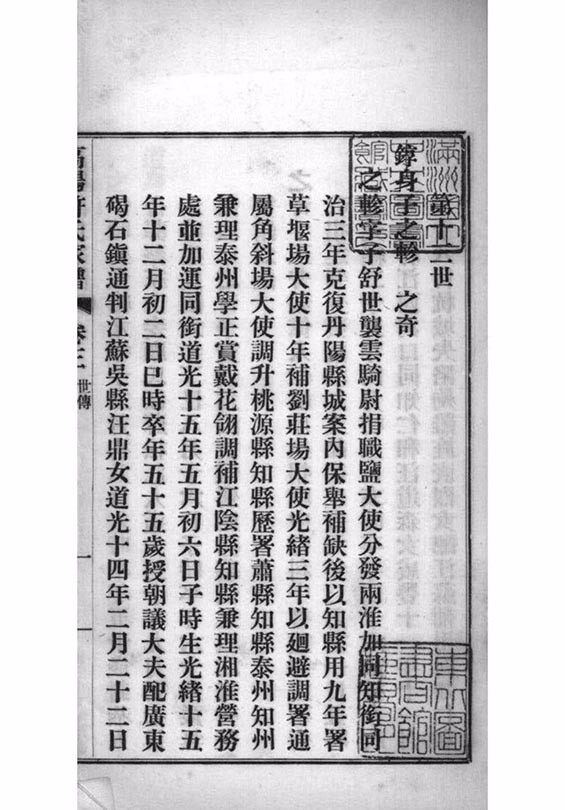 第十三世
錞身子之軫 之奇
之軫字子舒世襲雲騎尉捐職鹽大使分發兩淮加同知銜同
治三年克復丹陽縣城案內保舉補缺後以知縣用九年署
草堰場大使十年補劉莊場大使光緒三年以廻避調署通
屬角斜場大使調升桃源縣知縣歷署蕭縣知縣泰州知州
兼理泰州學正賞戴花翎調補江陰縣知縣兼理湘淮營務
處並加運同銜道光十五年五月初六日子時生光緒十五
年十二月初二日巳時卒年五十五歲授朝議大夫配廣東
碣石鎭通判江蘇吳縣汪鼎女道光十四年二月二十二日
高陽許氏家譜 卷三 世傳 一